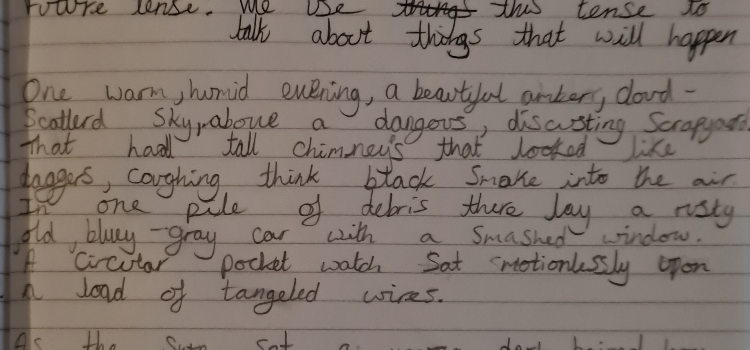 Future tense. We use things this tense to
talk about things that will happen
One warm, humid evening, a beautiful amber, cloud-
Scatterd Sky, above a dangous, discusting Scrapyard.
That had tall chimney's that looked like
daggers, coughing think black Smoke into the air.
In one pile of debris there lay a rusty
old, bluey-gray car with a smashed window.
A circular pocket watch Sat motionlessly upon
a load of tangeled wires.
As the Sun Sat a